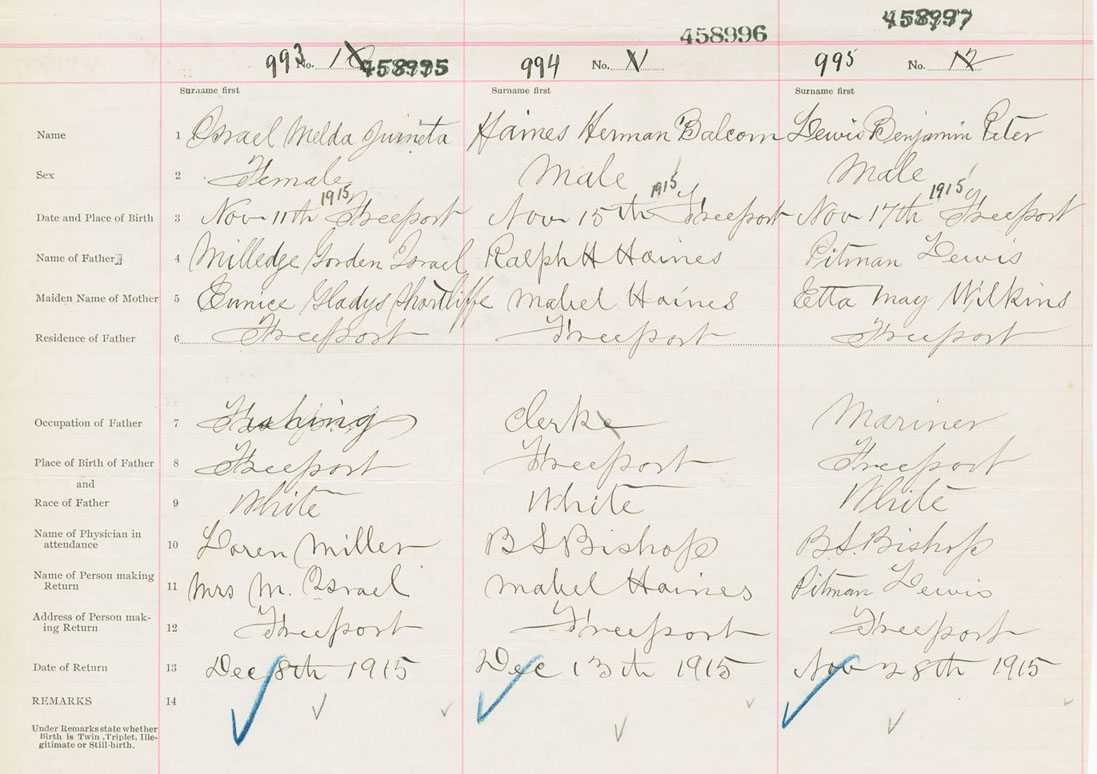 458996 458997
993 No. 458995 994 No. V 995 No.
Surname first Surname first Surname first
Name 1 Israel Melda Haines Herman Balcom Lewis Benjamin Peter
Sex 2 Female Male Male
1915 1915 1915
Date and Place of Birth 3 Nov 11th Freeport Nov 15th Freeport Nov 17th Freeport
Name of Father 4 Milledge Gorden Israel Ralph H Haines Pitman Lewis
Maiden Name of Mother 5 Eunice Gladys Shortliffe Mabel Haines Etta May Wilkins
Residence of Father 6 Freeport Freeport Freeport
Occupation of Father 7 Fishing Clerk Mariner
Place of Birth of Father 8 Freeport Freeport Freeport
and
Race of Father 9 White White White
Name of Physician in
attendance 10 Loren Miller B S Bishop B S Bishop
Name of Person making
Return 11 Mrs M. Israel Mabel Haines Pitman Lewis
Address of Person mak-
ing Return 12 Freeport Freeport Freeport
Date of Return 13 Dec 8th 1915 Dec 13th 1915 Nov 28th 1915
REMARKS 14
Under Remarks state whether
Birth is Twin, Triplet, Ille-
gitimate or Still-birth.